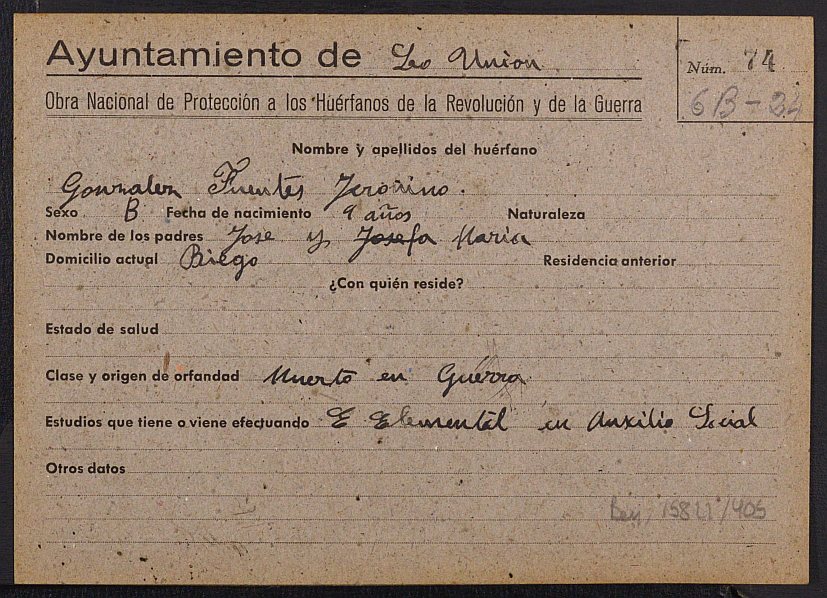 Ayuntamiento de La Union
Núm. 74
Obra Nacional de Protección a los Huérfanos de la Revolución y de la Guerra
6B-24
Nombre y apellidos del huérfano
Gonzalez Fuentes Jeronimo.
Sexo B Fecha de nacimiento 9 años Naturaleza
Nombre de los padres Jose y Josefa Maria
Domicilio actual Riego Residencia anterior
¿Con quién reside?
Estado de salud
Clase y origen de orfandad Muerto en Guerra
Estudios que tiene o viene efectuando E Elemental en Auxilio Social
Otros datos
/405